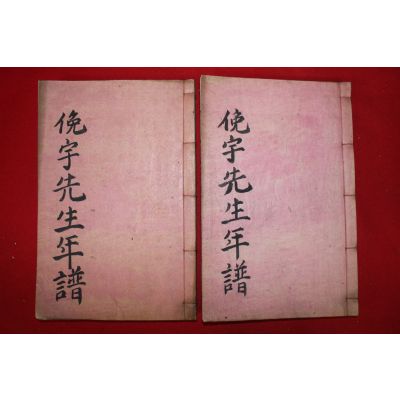 俛宇先生年譜
俛宇先生年譜